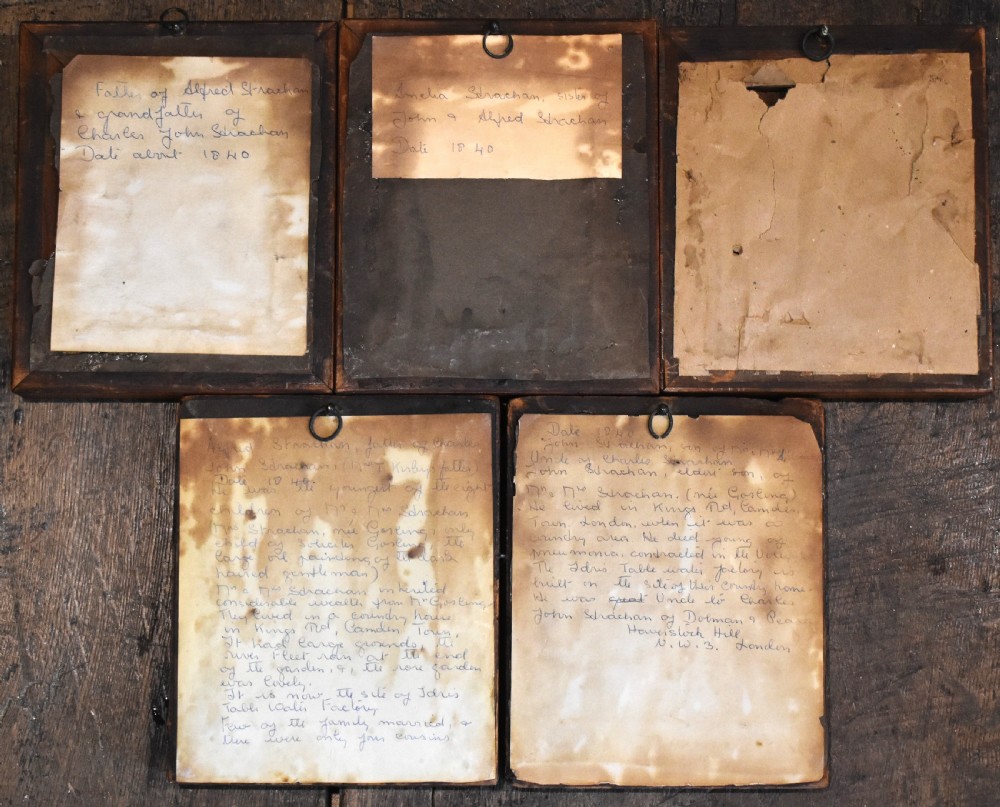 Father of Alfred Strachan
& grandfather of
Charles John Strachan
Date about 1840
Amelia Strachan, sister of
John & Alfred Strachan
Date 1840
Alfred Strachan, father of Charles
John Strachan, (Mrs T. Kirby's father)
Date 1840
He was the youngest of the eight
children of Mr & Mrs Strachan
Mrs Strachan, née Gosling, only
child of solicitor Gosling, the
large oil painting of the dark
haired gentleman)
Mr & Mrs Strachan inherited
considerable wealth from Mr Gosling,
They lived in a country house
in Kings Rd, Camden Town,
It had large grounds, the
river Fleet ran at the end
of the garden, &, the rose garden
was lovely.
It is now the site of Idris
Table Water Factory
Few of the family married, &
there were only four cousins.
Date
John Strachan,
Uncle of Charles Strachan
John Strachan, eldest son, of
Mr & Mrs Strachan, (née Gosling)
He lived in Kings Rd, Camden,
Town, London, when it was a
country area. He died young of
pneumonia, contracted in the
The Idris Table water factory is
built in the site of their country home
He was great Uncle to Charles
John Strachan of Dolman & Pearce
Haverstock Hill
N.W.3. London